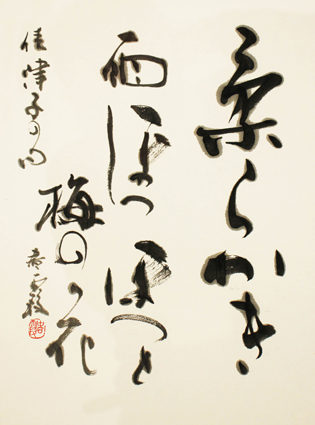 柔らかき
雨ほつほつと
梅の花
佳津子の句